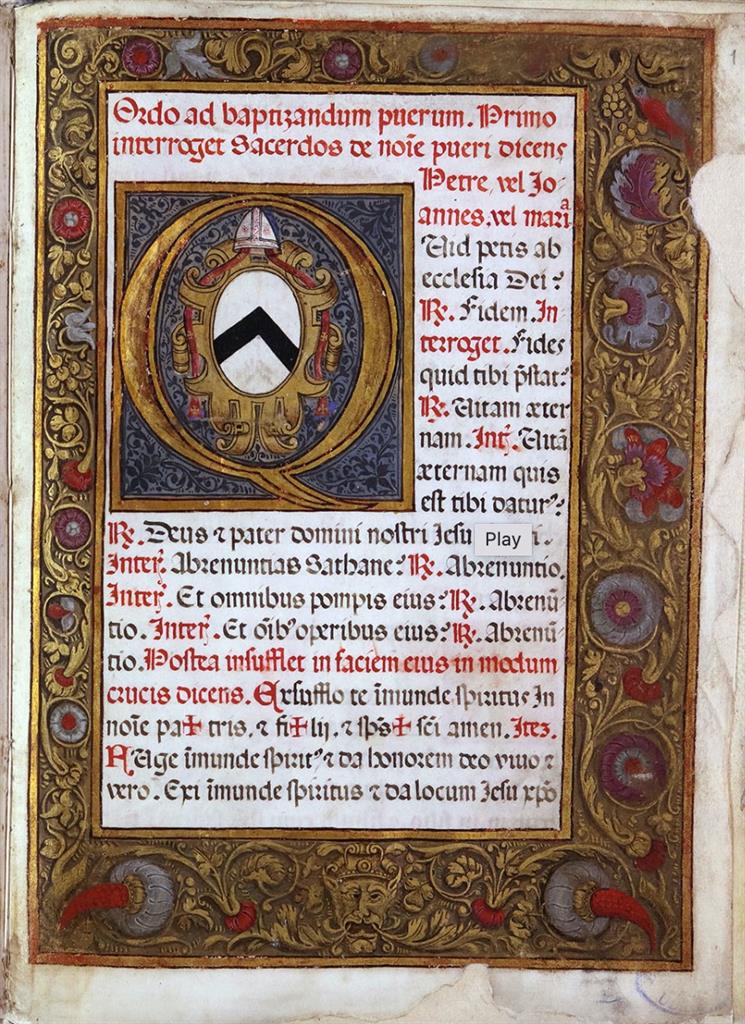 Ordo ad baptizandum puerum. Primo
interroget Sacerdos de noīe pueri dicens
Petre, vel Jo-
annes, vel mariª
QVid petis ab
ecclesia Dei?
℟. Fidem. In
terroget. Fides
quid tibi p̄stat?
℟. Vitam æter
nam. Int̄. Vitā
æternam quis
est tibi datur?
℟. Deus ⁊ pater domini nostri Jesu
Play
Inter̄. Abrenuntias Sathane? ℟. Abrenuntio.
Inter̄. Et omnibus pompis eius? ℟. Abrenū-
tio. Inter̄. Et oīb' operibus eius? ℟. Abrenū-
tio. Postea insufflet in faciem eius in modum
crucis dicens. Exsufflo te īmunde spiritus In
noīe pa✠tris, ⁊ fi✠lij, ⁊ sp̄s✠ sc̄i amen. Itez.
AVge īmunde spirit' ⁊ da honorem deo viuo ⁊
vero. Exi īmunde spiritus ⁊ da locum Jesu xp̄o
1